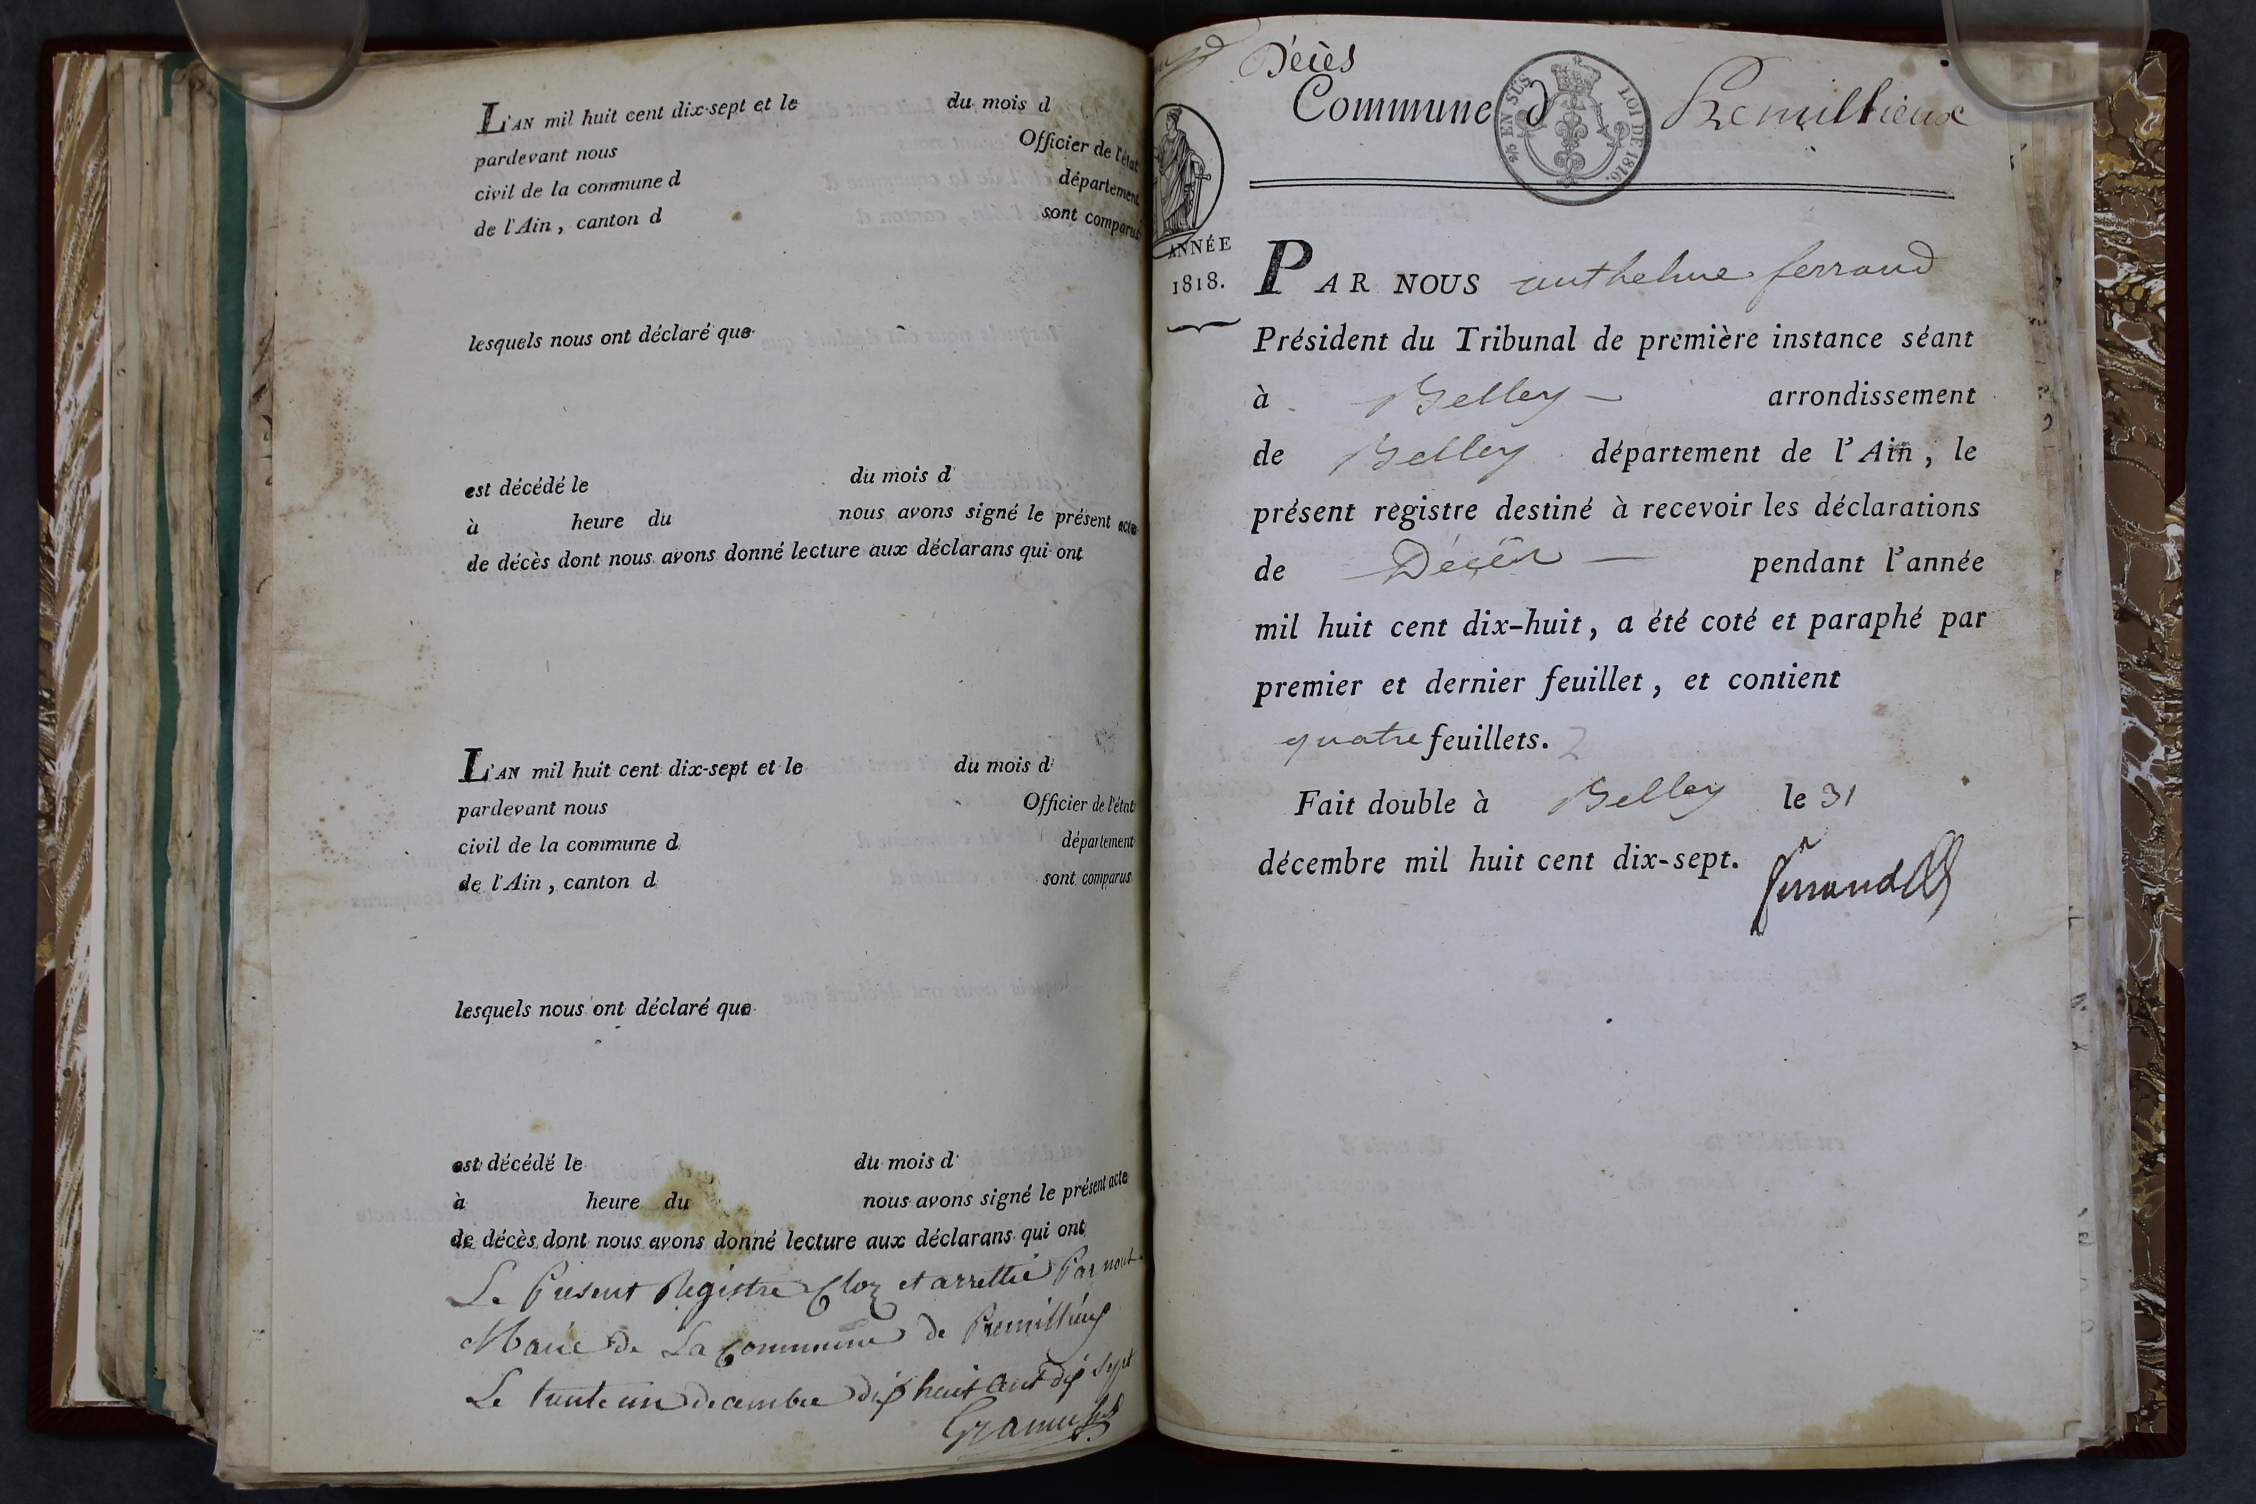 L'AN mil huit cent dix-sept et le du mois d
pardevant nous Officier de l'état
civil de la commune d département
de l'Ain, canton d sont comparus
lesquels nous ont déclaré que
est décédé le du mois d
à heure du nous avons signé le présent acte
de décès dont nous avons donné lecture aux déclarans qui ont
L'AN mil huit cent dix-sept et le du mois d
pardevant nous Officier de l'état
civil de la commune d département
de l'Ain, canton d sont comparus
lesquels nous ont déclaré que
est décédé le du mois d
à heure du nous avons signé le présent acte
de décès dont nous avons donné lecture aux déclarans qui ont
Le Present Registre Cloz et arrettié Par nous
Maire de La Commune de Premillieux
Le trente un decembre dix huit cent dix sept
Décès
Commune d Premillieux
EN SUS LOI DE 1816.
ANNÉE
1818.
PAR NOUS anthelme ferrand
Président du Tribunal de première instance séant
à Belley arrondissement
de Belley département de l'Ain, le
présent registre destiné à recevoir les déclarations
de Décès pendant l'année
mil huit cent dix-huit, a été coté et paraphé par
premier et dernier feuillet, et contient
quatre feuillets. 2
Fait double à Belley le 31
décembre mil huit cent dix-sept.
ferrand